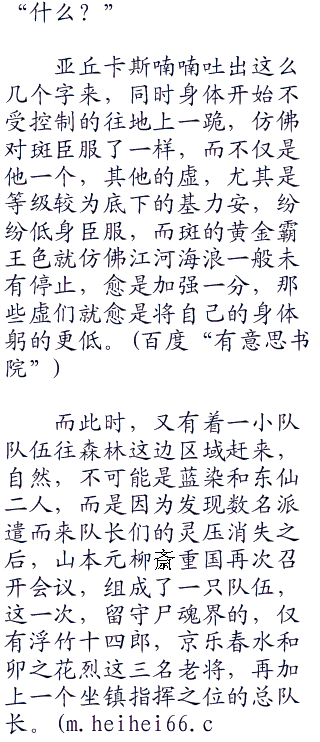 “什么？”
亚丘卡斯喃喃吐出这么
几个字来，同时身体开始不
受控制的往地上一跪，仿佛
对斑臣服了一样，而不仅是
他一个，其他的虚，尤其是
等级较为底下的基力安，纷
纷低身臣服，而斑的黄金霸
王色就仿佛江河海浪一般未
有停止，愈是加强一分，那
些虚们就愈是将自己的身体
躬的更低。(百度“有意思书
院”)
而此时，又有着一小队
队伍往森林这边区域赶来，
自然，不可能是蓝染和东仙
二人，而是因为发现数名派
遣而来队长们的灵压消失之
后，山本元柳斎重国再次召
开会议，组成了一只队伍，
这一次，留守尸魂界的，仅
有浮竹十四郎，京乐春水和
卯之花烈这三名老将，再加
上一个坐镇指挥之位的总队
长。(m.heihei66.c